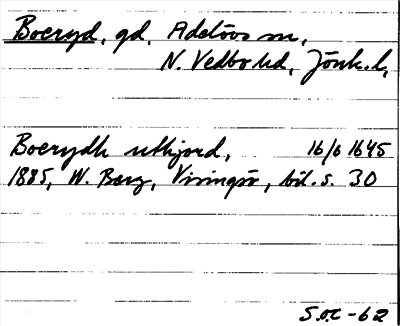 Boeryd, gd, Adelövs sn,
N. Vedbo hd, Jönk. l,
Boerydh utkjord, 16/6 1645
1885, W. Berg, Visingsö, bil. s. 30
S.O.C -62